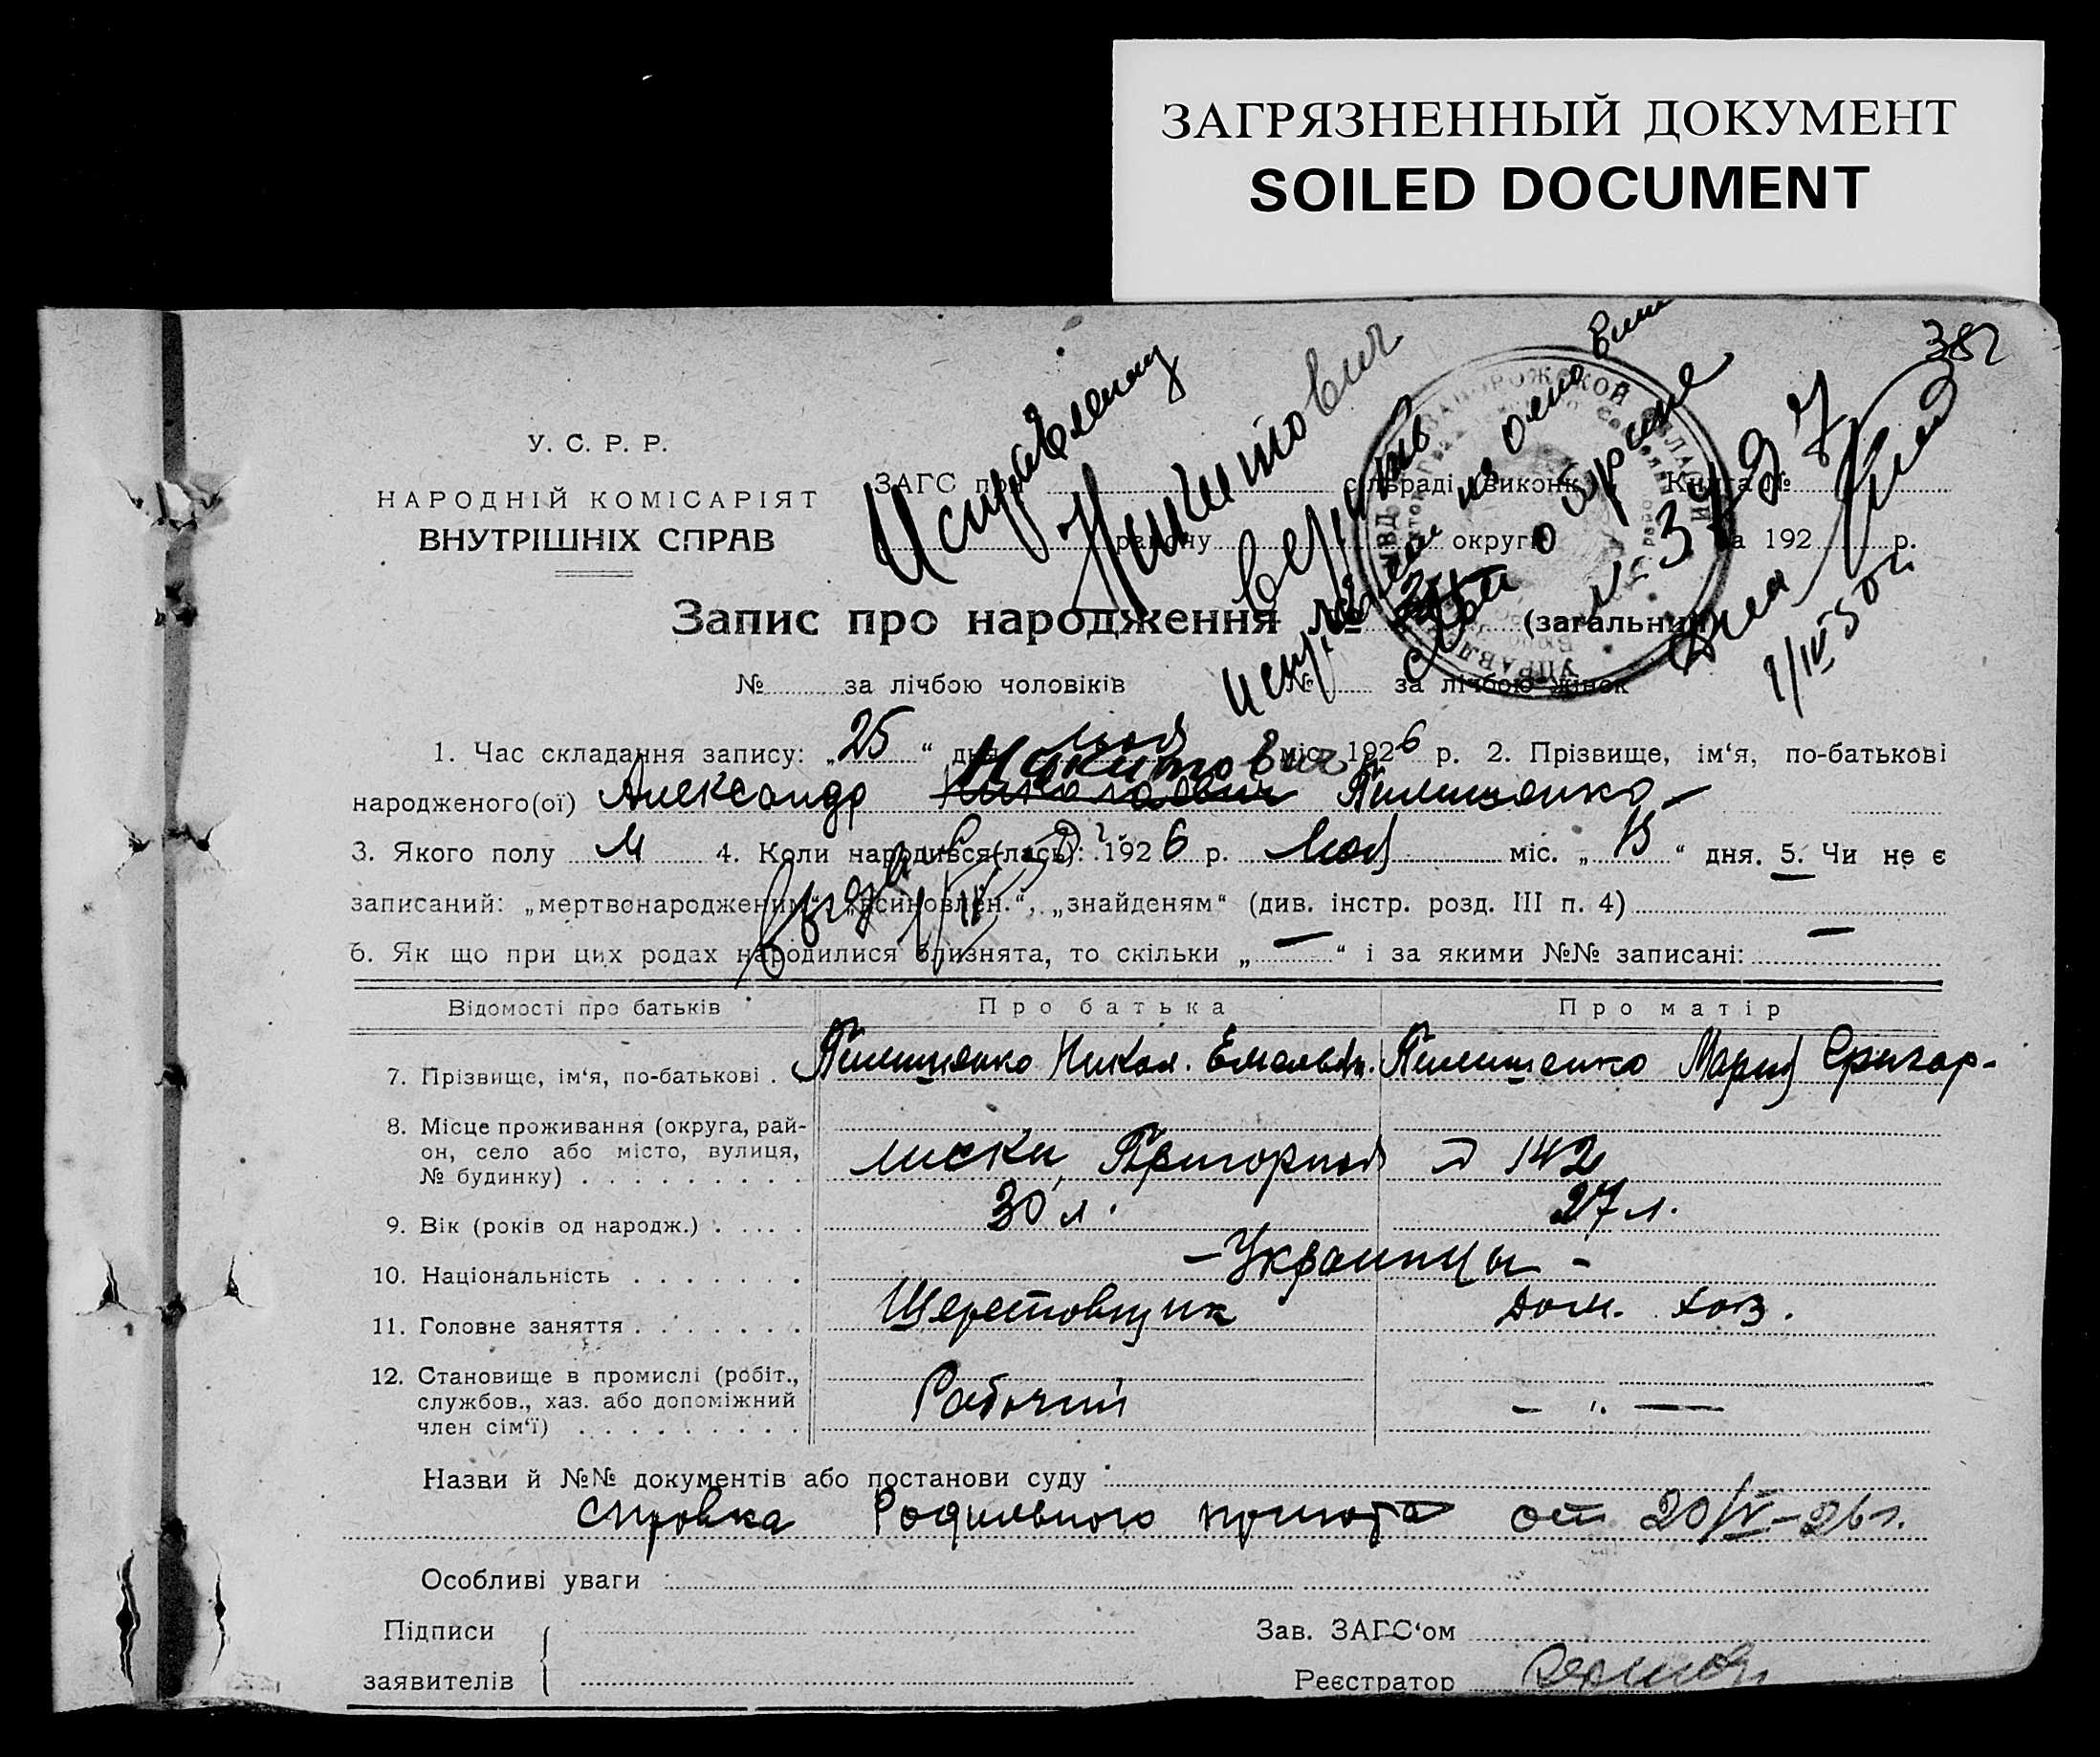 ЗАГРЯЗНЕННЫЙ ДОКУМЕНТ
SOILED DOCUMENT
382
У. С. Р. Р.
НАРОДНІЙ КОМІСАРІЯТ
ВНУТРІШНІХ СПРАВ
ЗАГС при сільраді (виконк. Книга №
району округи за 192 р.
Исправленому
Никитович
верить
Запис про народження № (загальний
№ за лічбою чоловіків № за лічбою жінок
1. Час складання запису: „25“ дня мая міс. 1926 р. 2. Прізвище, ім‘я, по-батькові
Никитович
народженого(ої) Александр Николаевич Пилипенко
3. Якого полу М 4. Коли народився(лась): 1926 р. мая міс. „15“ дня. 5. Чи не є
записаний: „мертвонародженим“, „всиновлен.“, „знайденям“ (див. інстр. розд. III п. 4) —
6. Як що при цих родах народилися близнята, то скільки „—“ і за якими №№ записані: —
Відомості про батьків Про батька Про матір
7. Прізвище, ім‘я, по-батькові . Пилипенко Никол. Емельян. Пилипенко Мария Григор-
8. Місце проживання (округа, рай-
он, село або місто, вулиця,
№ будинку) д 142
9. Вік (років од народж.) 30 л. 27 л.
10. Національність — Украинцы -
11. Головне заняття Шеретовщик Дом. хоз.
12. Становище в промислі (робіт.,
службов., хаз. або допоміжний
член сім‘ї) Рабочий — " —
Назви й №№ документів або постанови суду
Справка Родильного приюта от 20/V-26 г.
Особливі уваги
Підписи Зав. ЗАГС‘ом
заявителів Реєстратор